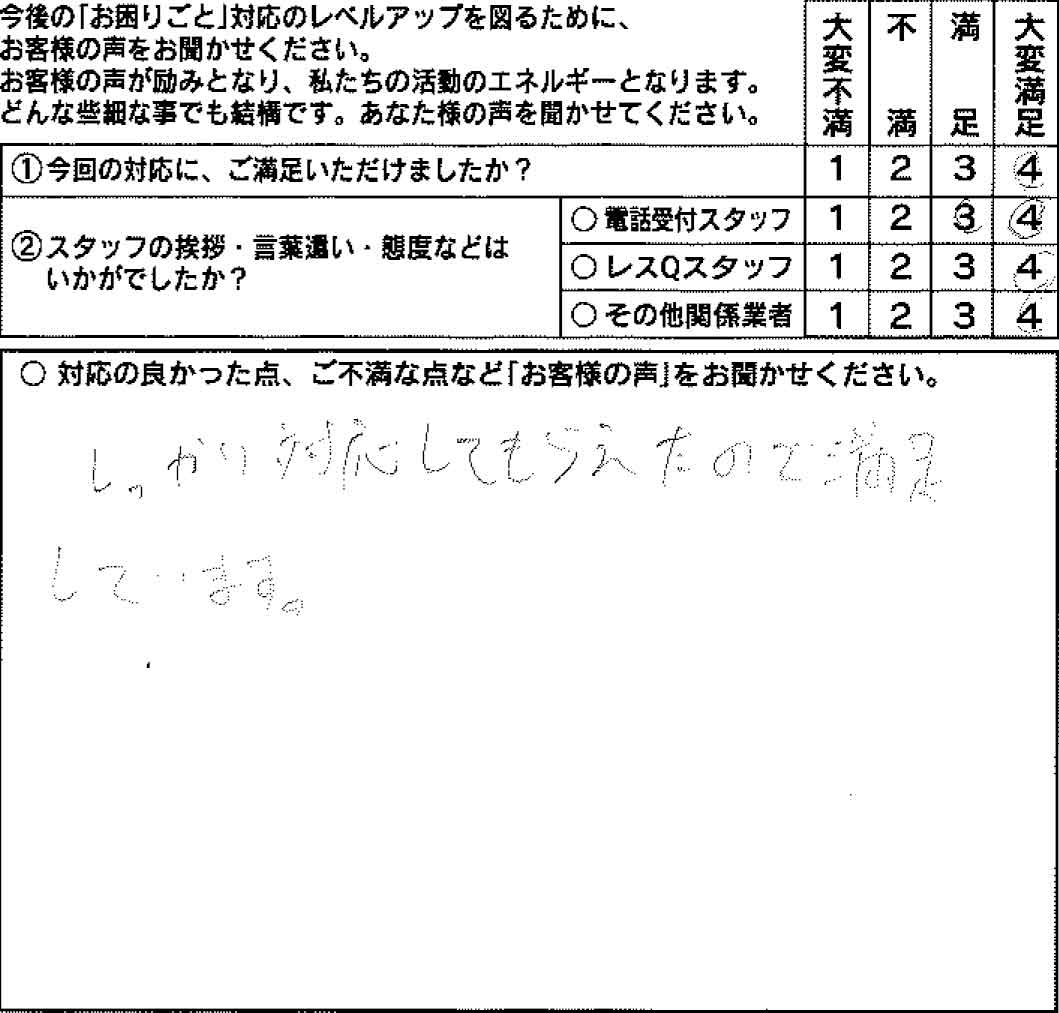 今後の「お困りごと」対応のレベルアップを図るために、
お客様の声をお聞かせください。
お客様の声が励みとなり、私たちの活動のエネルギーとなります。
どんな些細な事でも結構です。あなた様の声を聞かせてください。
大変不満 不満 満足 大変満足
①今回の対応に、ご満足いただけましたか？ 1 2 3 4
②スタッフの挨拶・言葉遣い・態度などは
いかがでしたか？
○ 電話受付スタッフ 1 2 3 4
○ レスQスタッフ 1 2 3 4
○ その他関係業者 1 2 3 4
○ 対応の良かった点、ご不満な点など「お客様の声」をお聞かせください。
しっかり対応してもらえたので満足
しています。